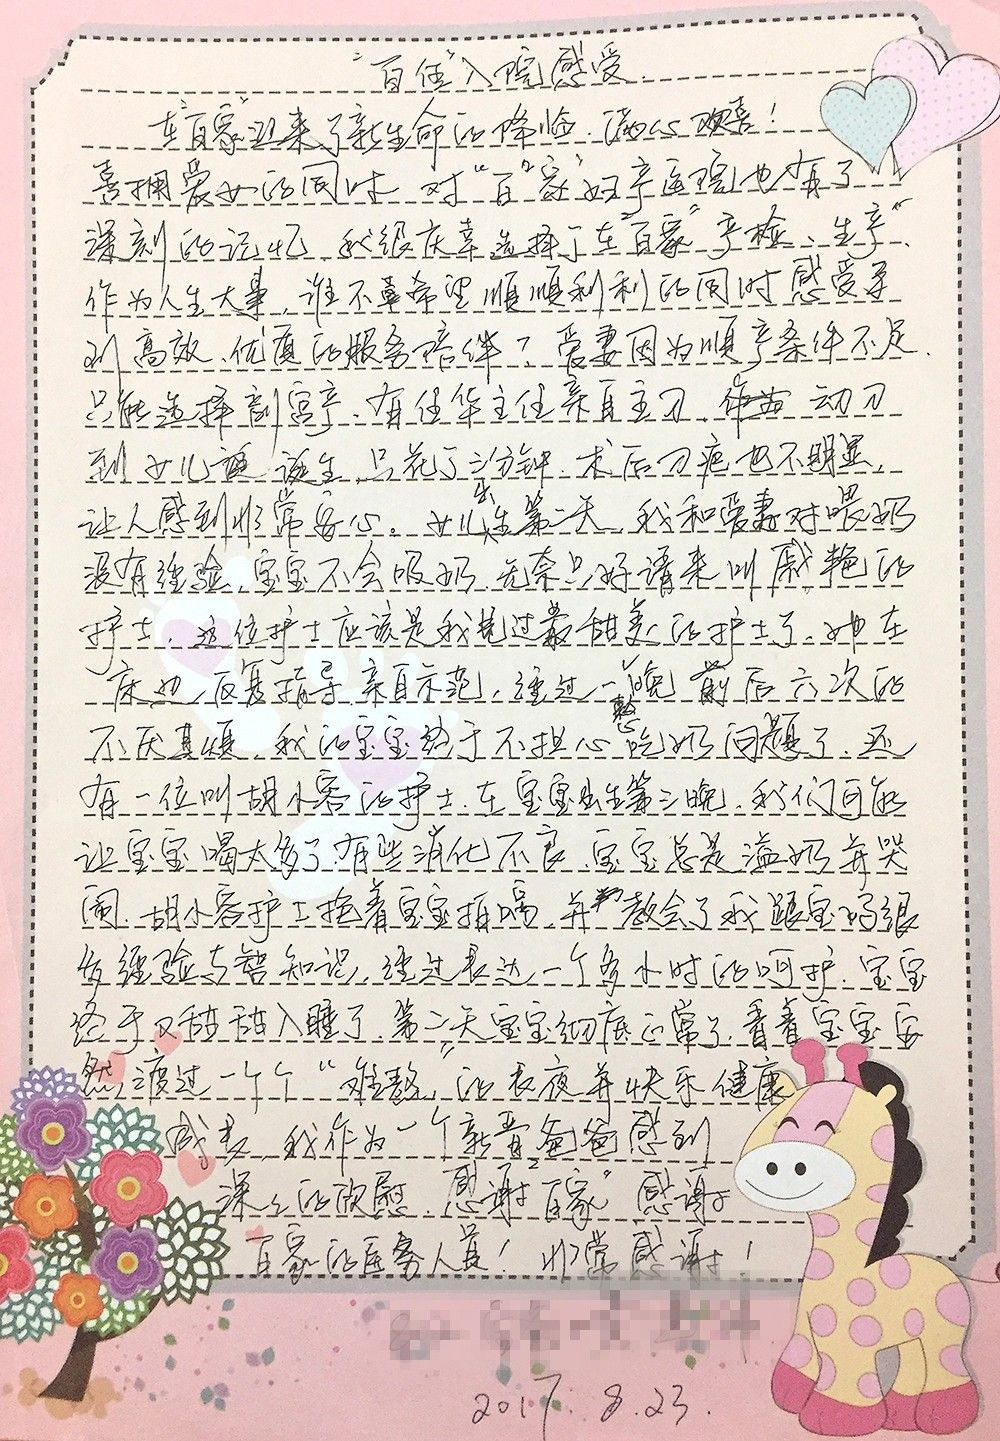 “百佳”入院感受.
在“百家”迎来了新生命的降临.满心欢喜!
喜拥爱女的同时 对“百”家”妇产医院也有了
深刻的记忆.我很庆幸选择了在“百家”产检、生产”
作为人生大事,谁不喜希望顺顺利利的同时感受享
到高效、优质的服务陪伴？爱妻因为顺产条件不足.
只能选择剖宫产.有任华主任亲自主刀. 动刀
到女儿诞生.只花了三分钟.术后刀疤也不明显.
让人感到非常安心。女儿出生第二天.我和爱妻对喂奶
没有经验.宝宝不会吸奶.无奈只好请来叫戚艳的
护士.这位护士应该是我见过最甜美的护士了.她在
床边.反复指导亲自示范.经过一晚前后六次的
不厌其烦.我的宝宝终于不担心憋吃奶问题了.还
有一位叫胡小容的护士.在宝宝出生第三晚.我们可能
让宝宝喝太多了.有些消化不良.宝宝总是溢奶并哭
闹.胡小容护士抱着宝宝拍嗝.并教会了我跟宝妈很
多经验与知识.经过长达一个多小时的呵护.宝宝
终于又甜甜入睡了.第二天宝宝彻底正常了.看着宝宝安
然渡过一个个“难熬”的长夜并快乐健康
成长.我作为一个新晋爸爸感到
深深的欣慰.感谢“百家”感谢
百家的医务人员!非常感谢!
2017.8.23.